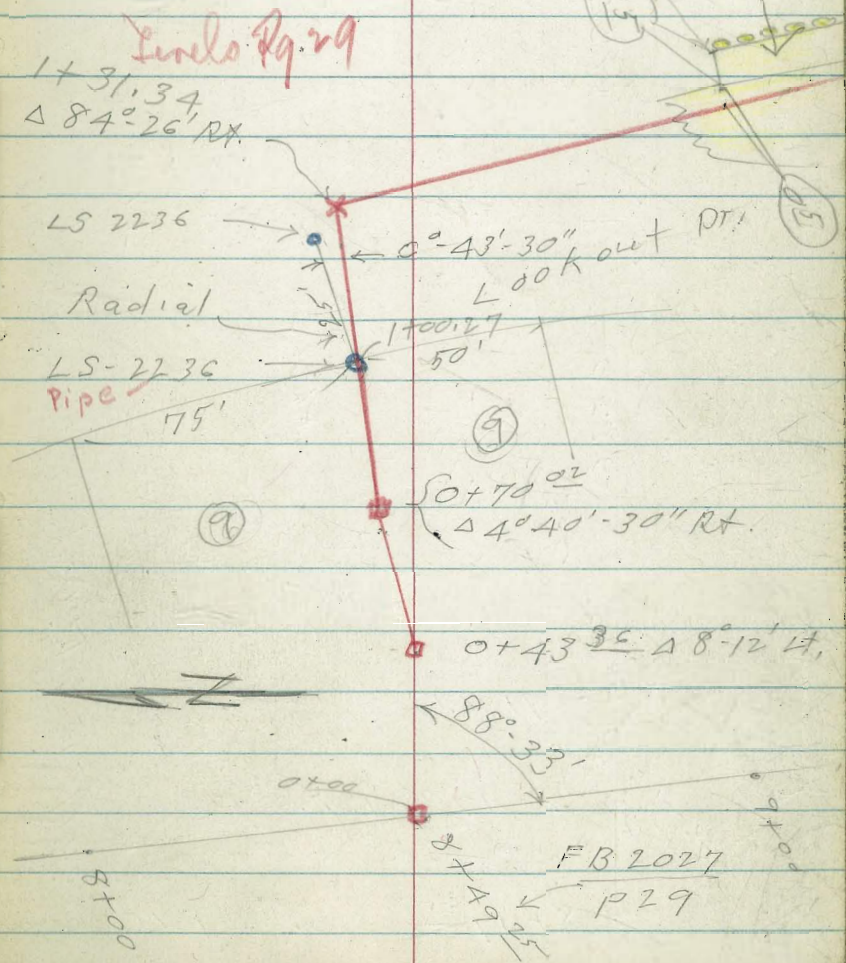 Levels Pg. 29
1+31.34
Δ 84°-26' Rt.
LS 2236
0°-43'-30"
Lookout Dr.
Radial
1+00.27
50'
LS-2236
Pipe
75'
9
9
0+70 02
Δ 4°40'-30" Rt.
0+43 36 Δ 8°-12' Lt.
Z
88°-33'
0+00
9+00
8+00
8+49 25
FB 2027
P29